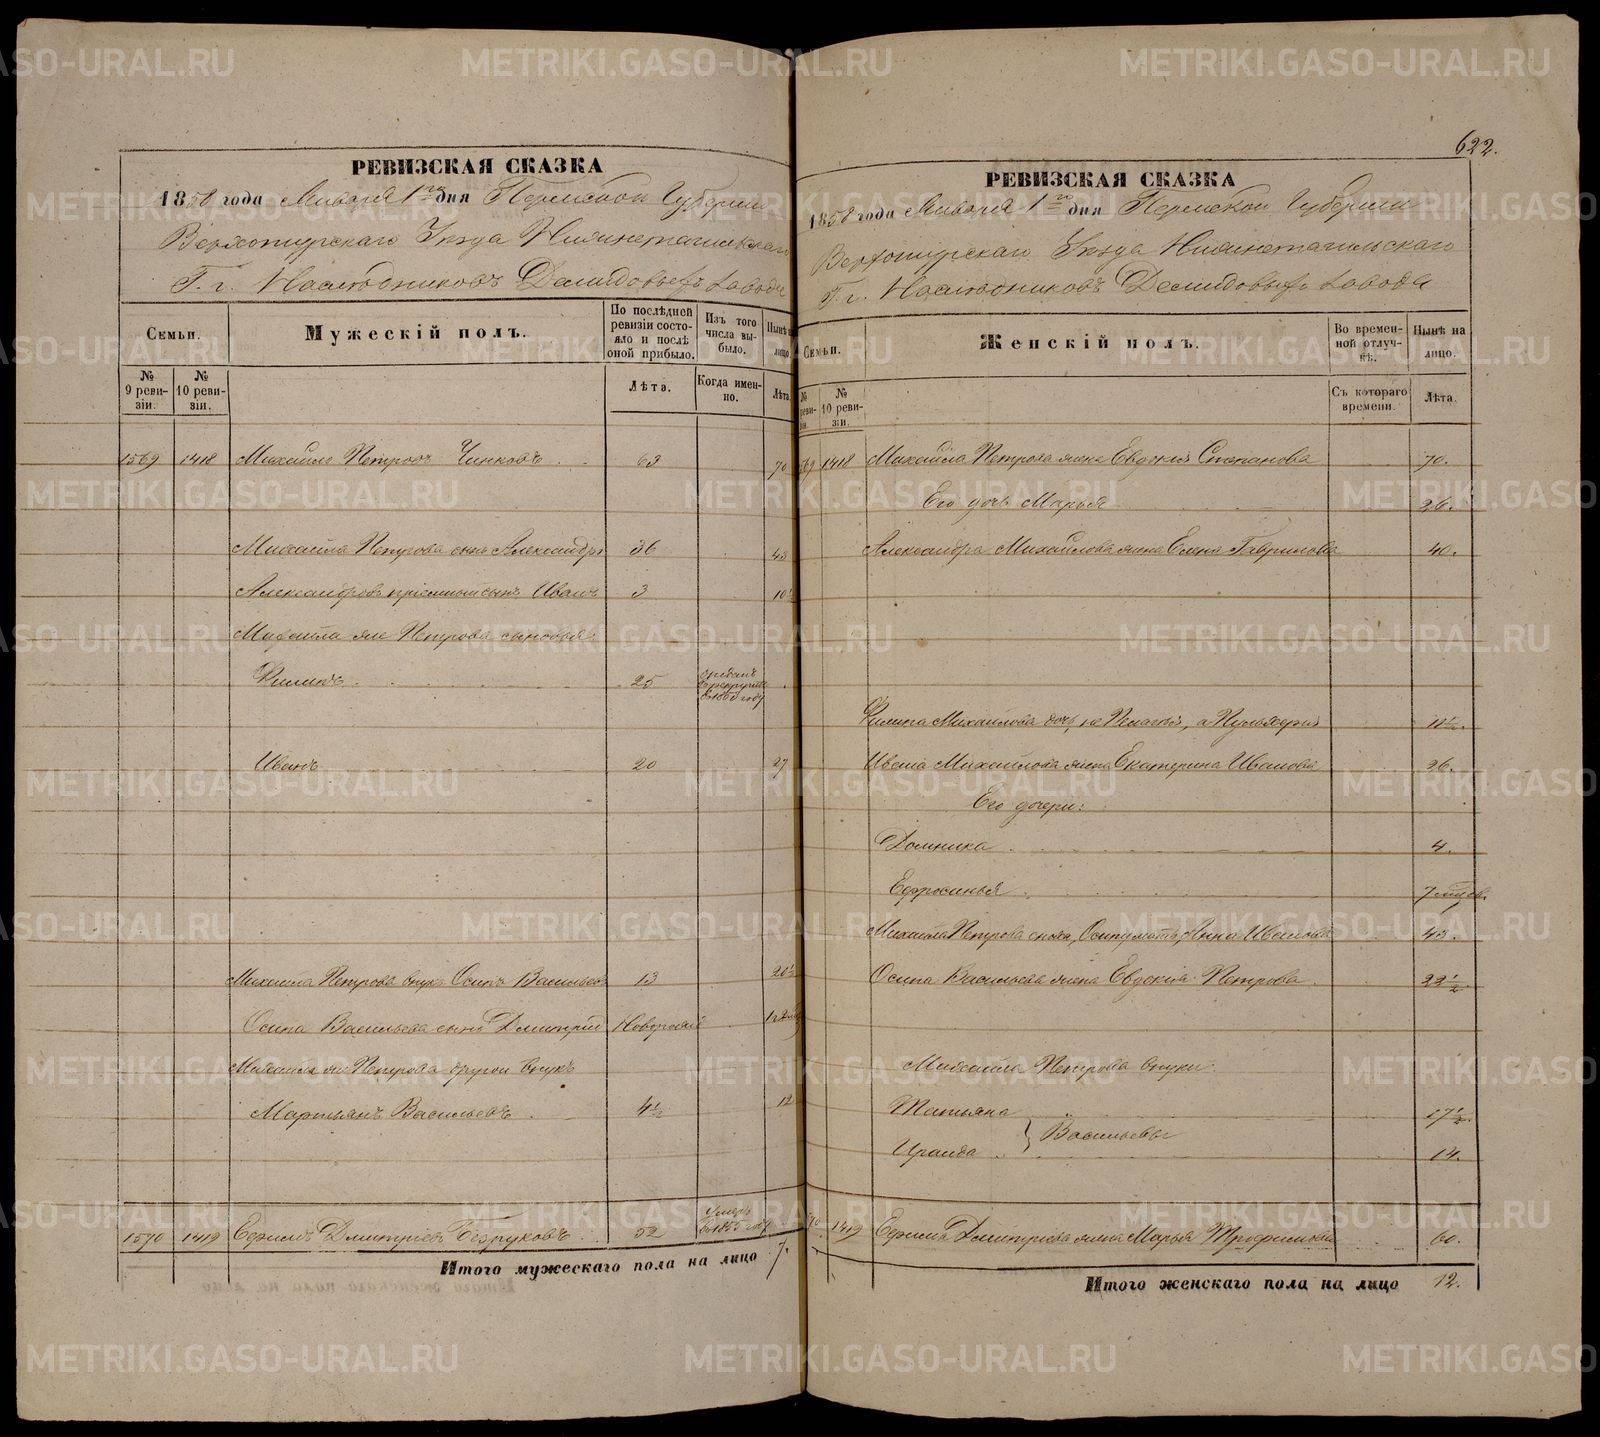 622.
РЕВИЗСКАЯ СКАЗКА
1858 года Января 1го дня Пермской Губернии
Верхотурскаго Уезда Нижнетагильскаго
Г. г. Наследниковъ Демидовыхъ Завода
Семьи.
Мужескій полъ.
По послѣдней ревизіи состояло и послѣ оной прибыло.
Изъ того числа выбыло.
Нынѣ на лицо
№ 9 ревизіи.
№ 10 ревизіи.
Лѣта.
Когда именно.
Лѣта.
1569 1418 Михайло Петровъ Чинковъ 63 70
Михайла Петрова сынъ Александръ 36 43
Александровъ пріемный сынъ Иванъ 3 10½
Михайла же Петрова сыновья:
Филипъ 25
въ 1855 году
Иванъ 20 27
Михайла Петрова внукъ Осипъ Васильевъ 13 20½
Осипа Васильева сынъ Дмитрій Новорожд
Михайла же Петрова другой внукъ
Мартьянъ Васильевъ 4½ 12
1570 1419 Ефимъ Дмитріевъ Безруковъ 52 умеръ въ 1855 году
Итого мужескаго пола на лицо 7.
РЕВИЗСКАЯ СКАЗКА
1858 года Января 1го дня Пермской Губернии
Верхотурскаго Уезда Нижнетагильскаго
Г. г. Наследниковъ Демидовыхъ Завода
Семьи.
Женскій полъ.
Во временной отлучкѣ.
Нынѣ на лицо.
№ 10 ревизіи.
Съ котораго времени.
Лѣта.
69 1418 Михайла Петрова жена Евдокия Степанова 70.
Его дочь Марья 26.
Александра Михайлова жена Елена Гаврилова 40.
Филипа Михайлова дочь, не Пелагея, а Пульхерия 11½.
Ивана Михайлова жена Екатерина Иванова 26.
Его дочери:
Домника 4.
Ефросинья 7 мцов.
Михайла Петрова сноха, Осипу мать, Анна Иванова 43.
Осипа Васильева жена Евдокія Петрова 22½.
Михайла Петрова внуки:
Татьяна 17½.
Васильевы
Ираида 14.
70. 1419 Ефима Дмитріева жена Марья Трофимова 60.
Итого женскаго пола на лицо 12.
METRIKI.GASO-URAL.RU